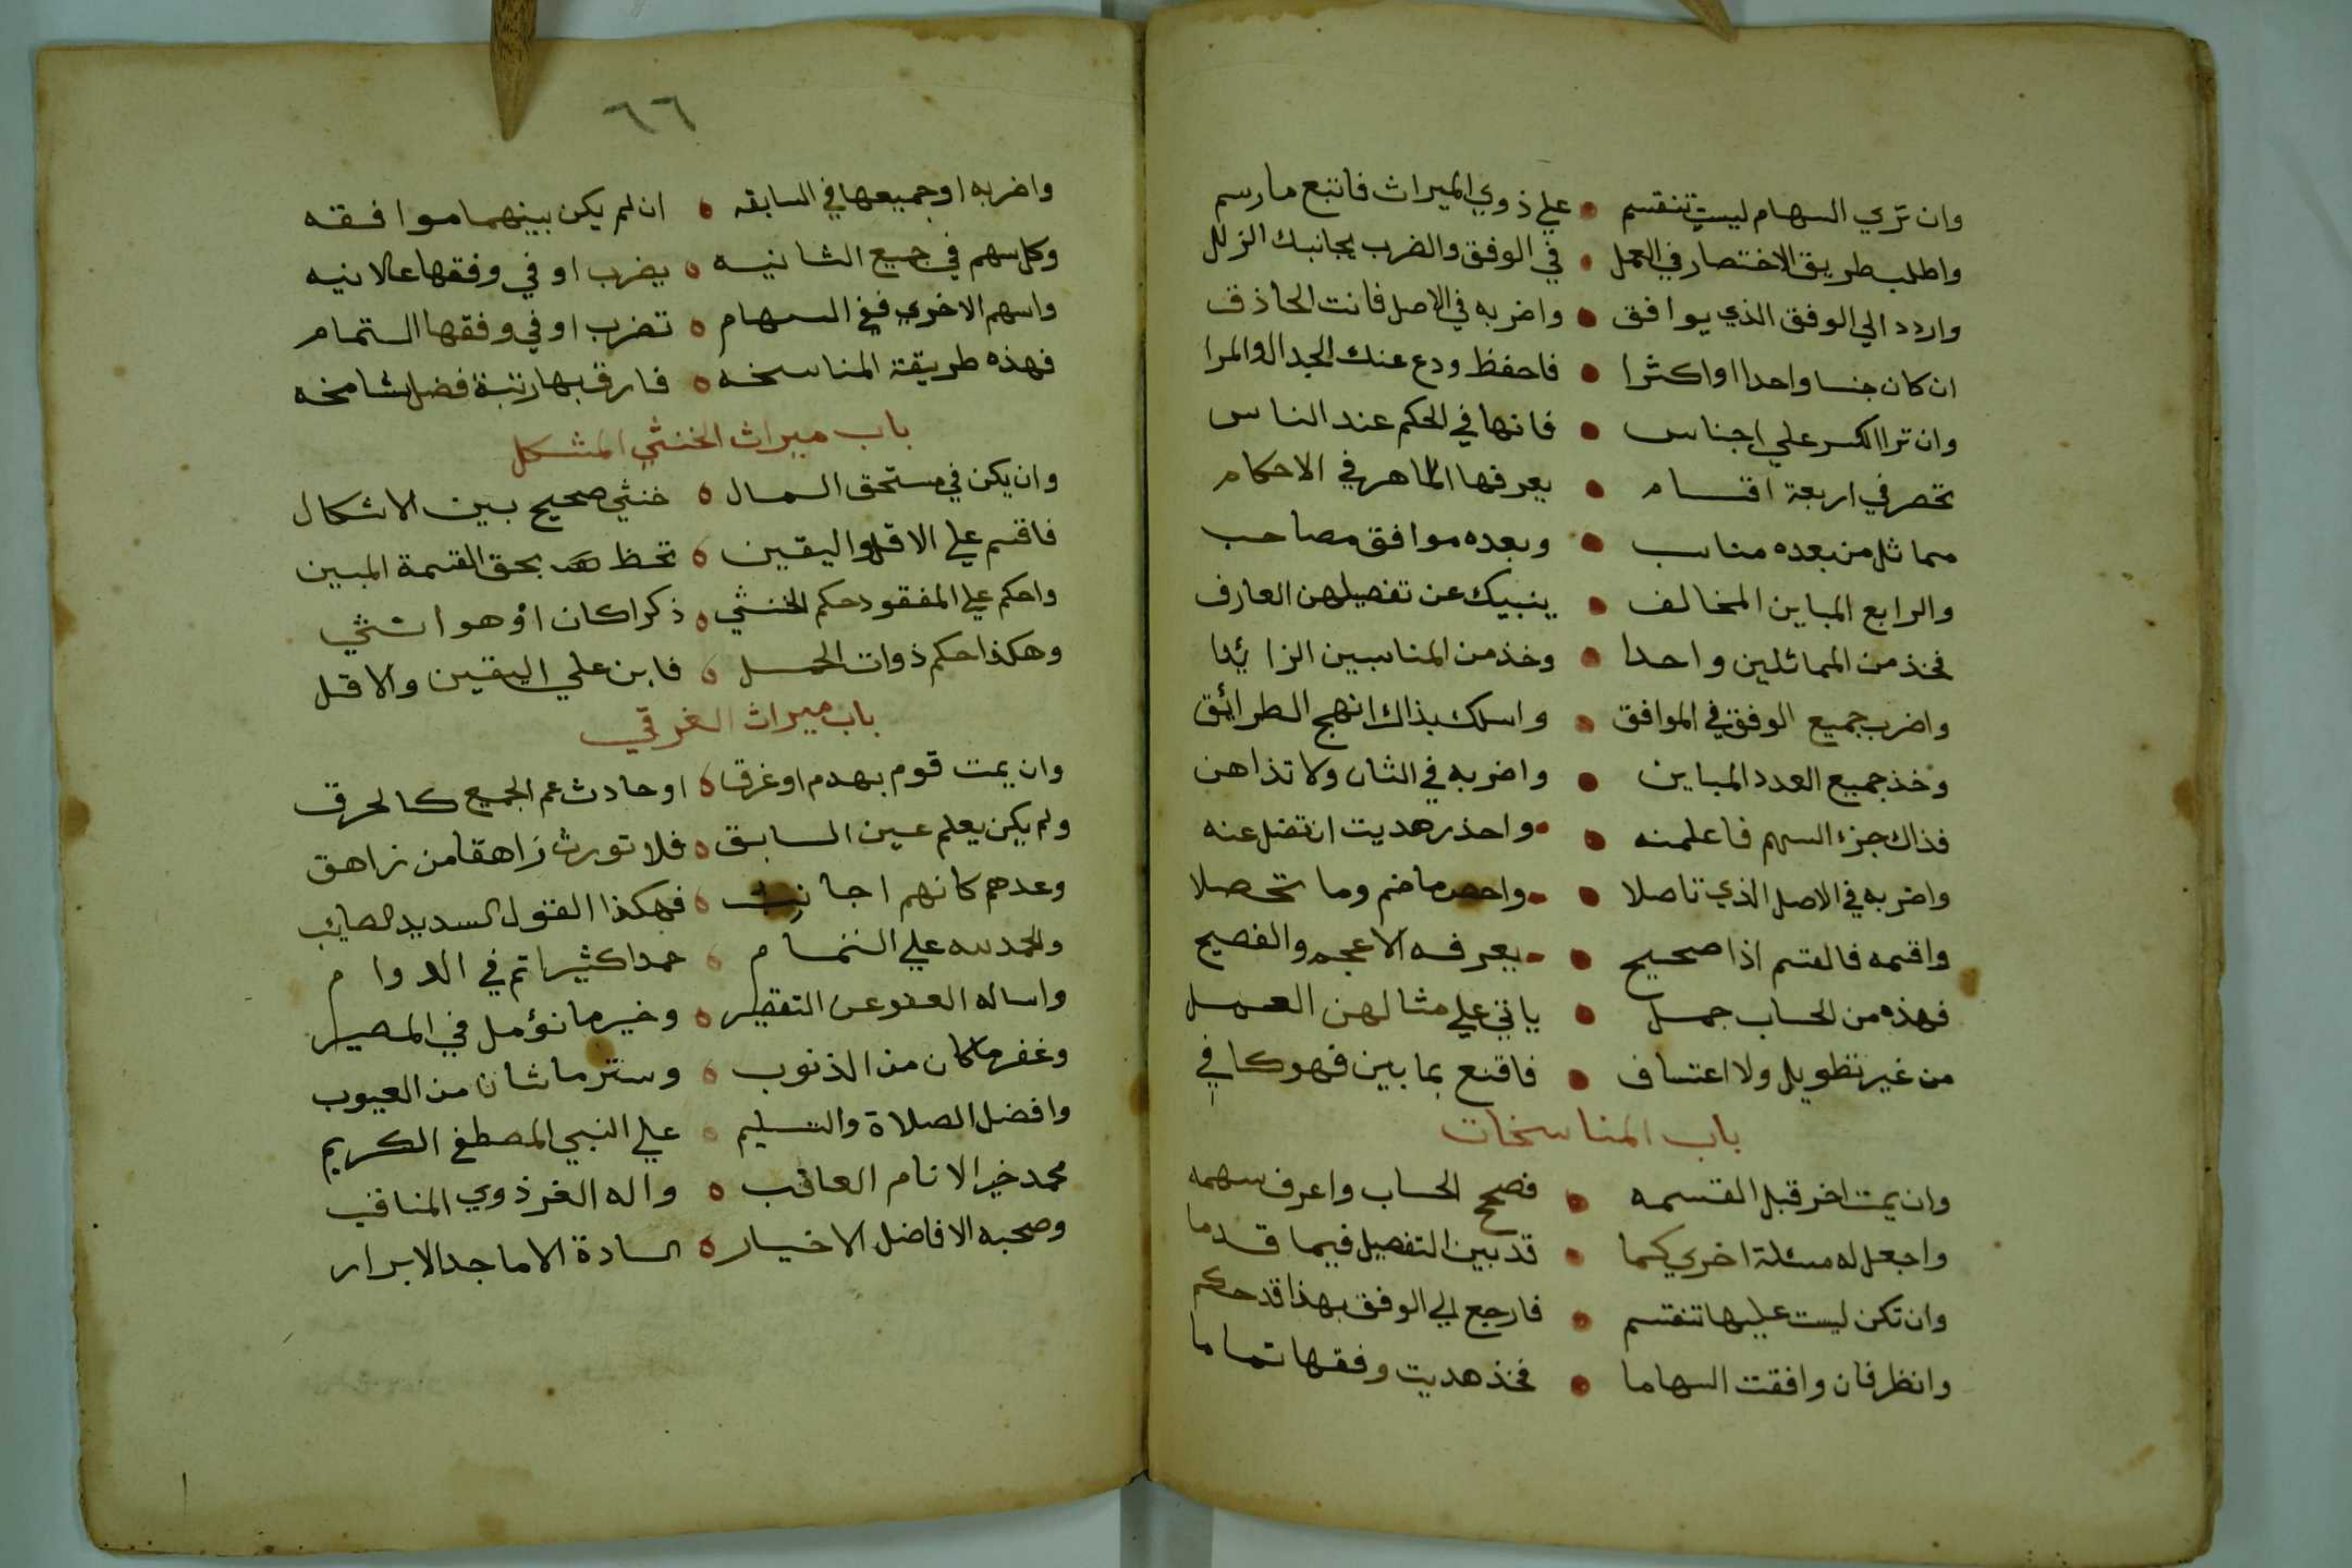 وان تري السهام ليست تنقسم • علي ذوي الميراث فاتبع ما رسم
واطلب طريق الاختصار في العمل • في الوفق والضرب يجانبك الزلل
واردد الي الوفق الذي يوافق • واضربه في الاصل فانت الحاذق
ان كان جنسا واحدا او اكثرا • فاحفظ ودع عنك الجدال والمرا
وان ترا الكسر علي اجناس • فانها في الحكم عند الناس
تحصر في اربعة اقسام • يعرفها الماهر في الاحكام
مماثل من بعده مناسب • وبعده موافق مصاحب
والرابع المباين المخالف • ينبيك عن تفصيلهن العارف
فخذ من المماثلين واحدا • وخذ من المناسبين الزائدا
واضرب جميع الوفق في الموافق • واسلك بذاك انهج الطرائق
وخذ جميع العدد المباين • واضربه في الثان ولا تداهن
فذاك جزء السهم فاعلمنه • واحذر هديت ان تضل عنه
واضربه في الاصل الذي تاصلا • واحص ما ضم وما تحصلا
واقسمه فالقسم اذا صحيح • يعرفه الاعجم والفصيح
فهذه من الحساب جمل • ياتي علي مثالهن العمل
من غير تطويل ولا اعتساف • فاقنع بما بين فهو كافي
باب المناسخات
وان يمت اخر قبل القسمه • فصحح الحساب واعرف سهمه
واجعل له مسئلة اخري كما • قد بين التفصيل فيما قدما
وان تكن ليست عليها تنقسم • فارجع الي الوفق بهذا قد حكم
وانظر فان وافقت السهاما • فخذ هديت وفقها تماما
٦٦
واضربه او جميعها في السابقه • ان لم يكن بينهما موافقه
وكل سهم في جميع الثانيه • يضرب او في وفقها علانيه
واسهم الاخري ففي السهام • تضرب او في وفقها التمام
فهذه طريقة المناسخه • فارق بها رتبة فضل شامخه
باب ميراث الخنثي المشكل
وان يكن في مستحق المال • خنثي صحيح بين الاشكال
فاقسم علي الاقل واليقين • تحظ بحق القسمة المبين
واحكم علي المفقود حكم الخنثي • ذكرا كان او هو انثي
وهكذا حكم ذوات الحمل • فابن علي اليقين والاقل
باب ميراث الغرقي
وان يمت قوم بهدم او غرق • او حادث عم الجميع كالحرق
ولم يكن يعلم عين السابق • فلا تورث زاهقا من زاهق
وعدهم كانهم اجانب • فهكذا القول السديد الصايب
والحمد لله علي التمام • حمدا كثيرا تم في الدوام
واساله العفو عن التقصير • وخير ما نؤمل في المصير
وغفر ما كان من الذنوب • وستر ما شان من العيوب
وافضل الصلاة والتسليم • علي النبي المصطفي الكريم
محمد خير الانام العاقب • واله الغر ذوي المناقب
وصحبه الافاضل الاخيار • السادة الاماجد الابرار